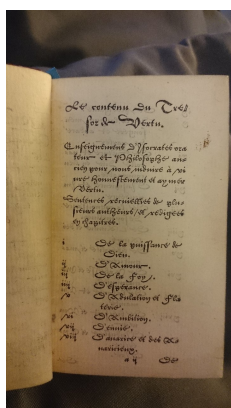 Le contenu du Tre-
sor de Vertu.
Enseignement d'Isocrates ora
teur et Philosophe anc
cien pour nous induire à vi
vre honnestement et aymer
Vertu.
Sentences recueillies de plu-
sieurs autheurs, et redigees
en chapitres.
i De la puissance de
Dieu.
ii D'Amour.
iii De la foy.
iiii D'esperance.
v D'Adulation et fla
terie.
vi D'Ambition.
vii D'envie.
viii D'avarice et des A-
varicieux.
a ij De